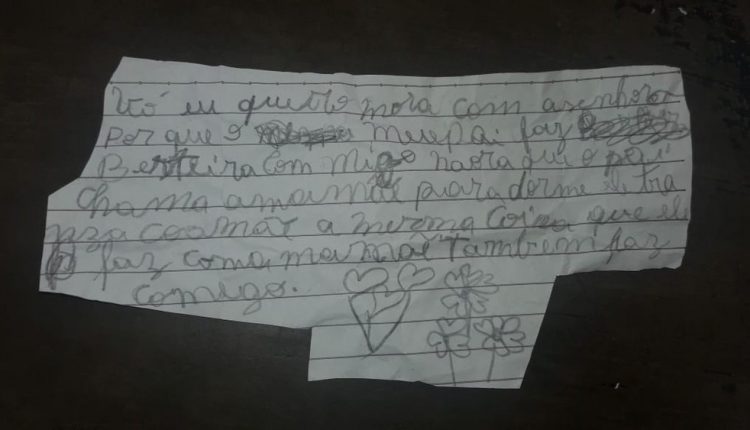 Vó eu quero mora com asenhora
Por que o meu pai faz
Besteira com migo naora que o pai
chama amamãe para dorme
a mesma coiza que ele
faz coma mamãe também faz
comigo.